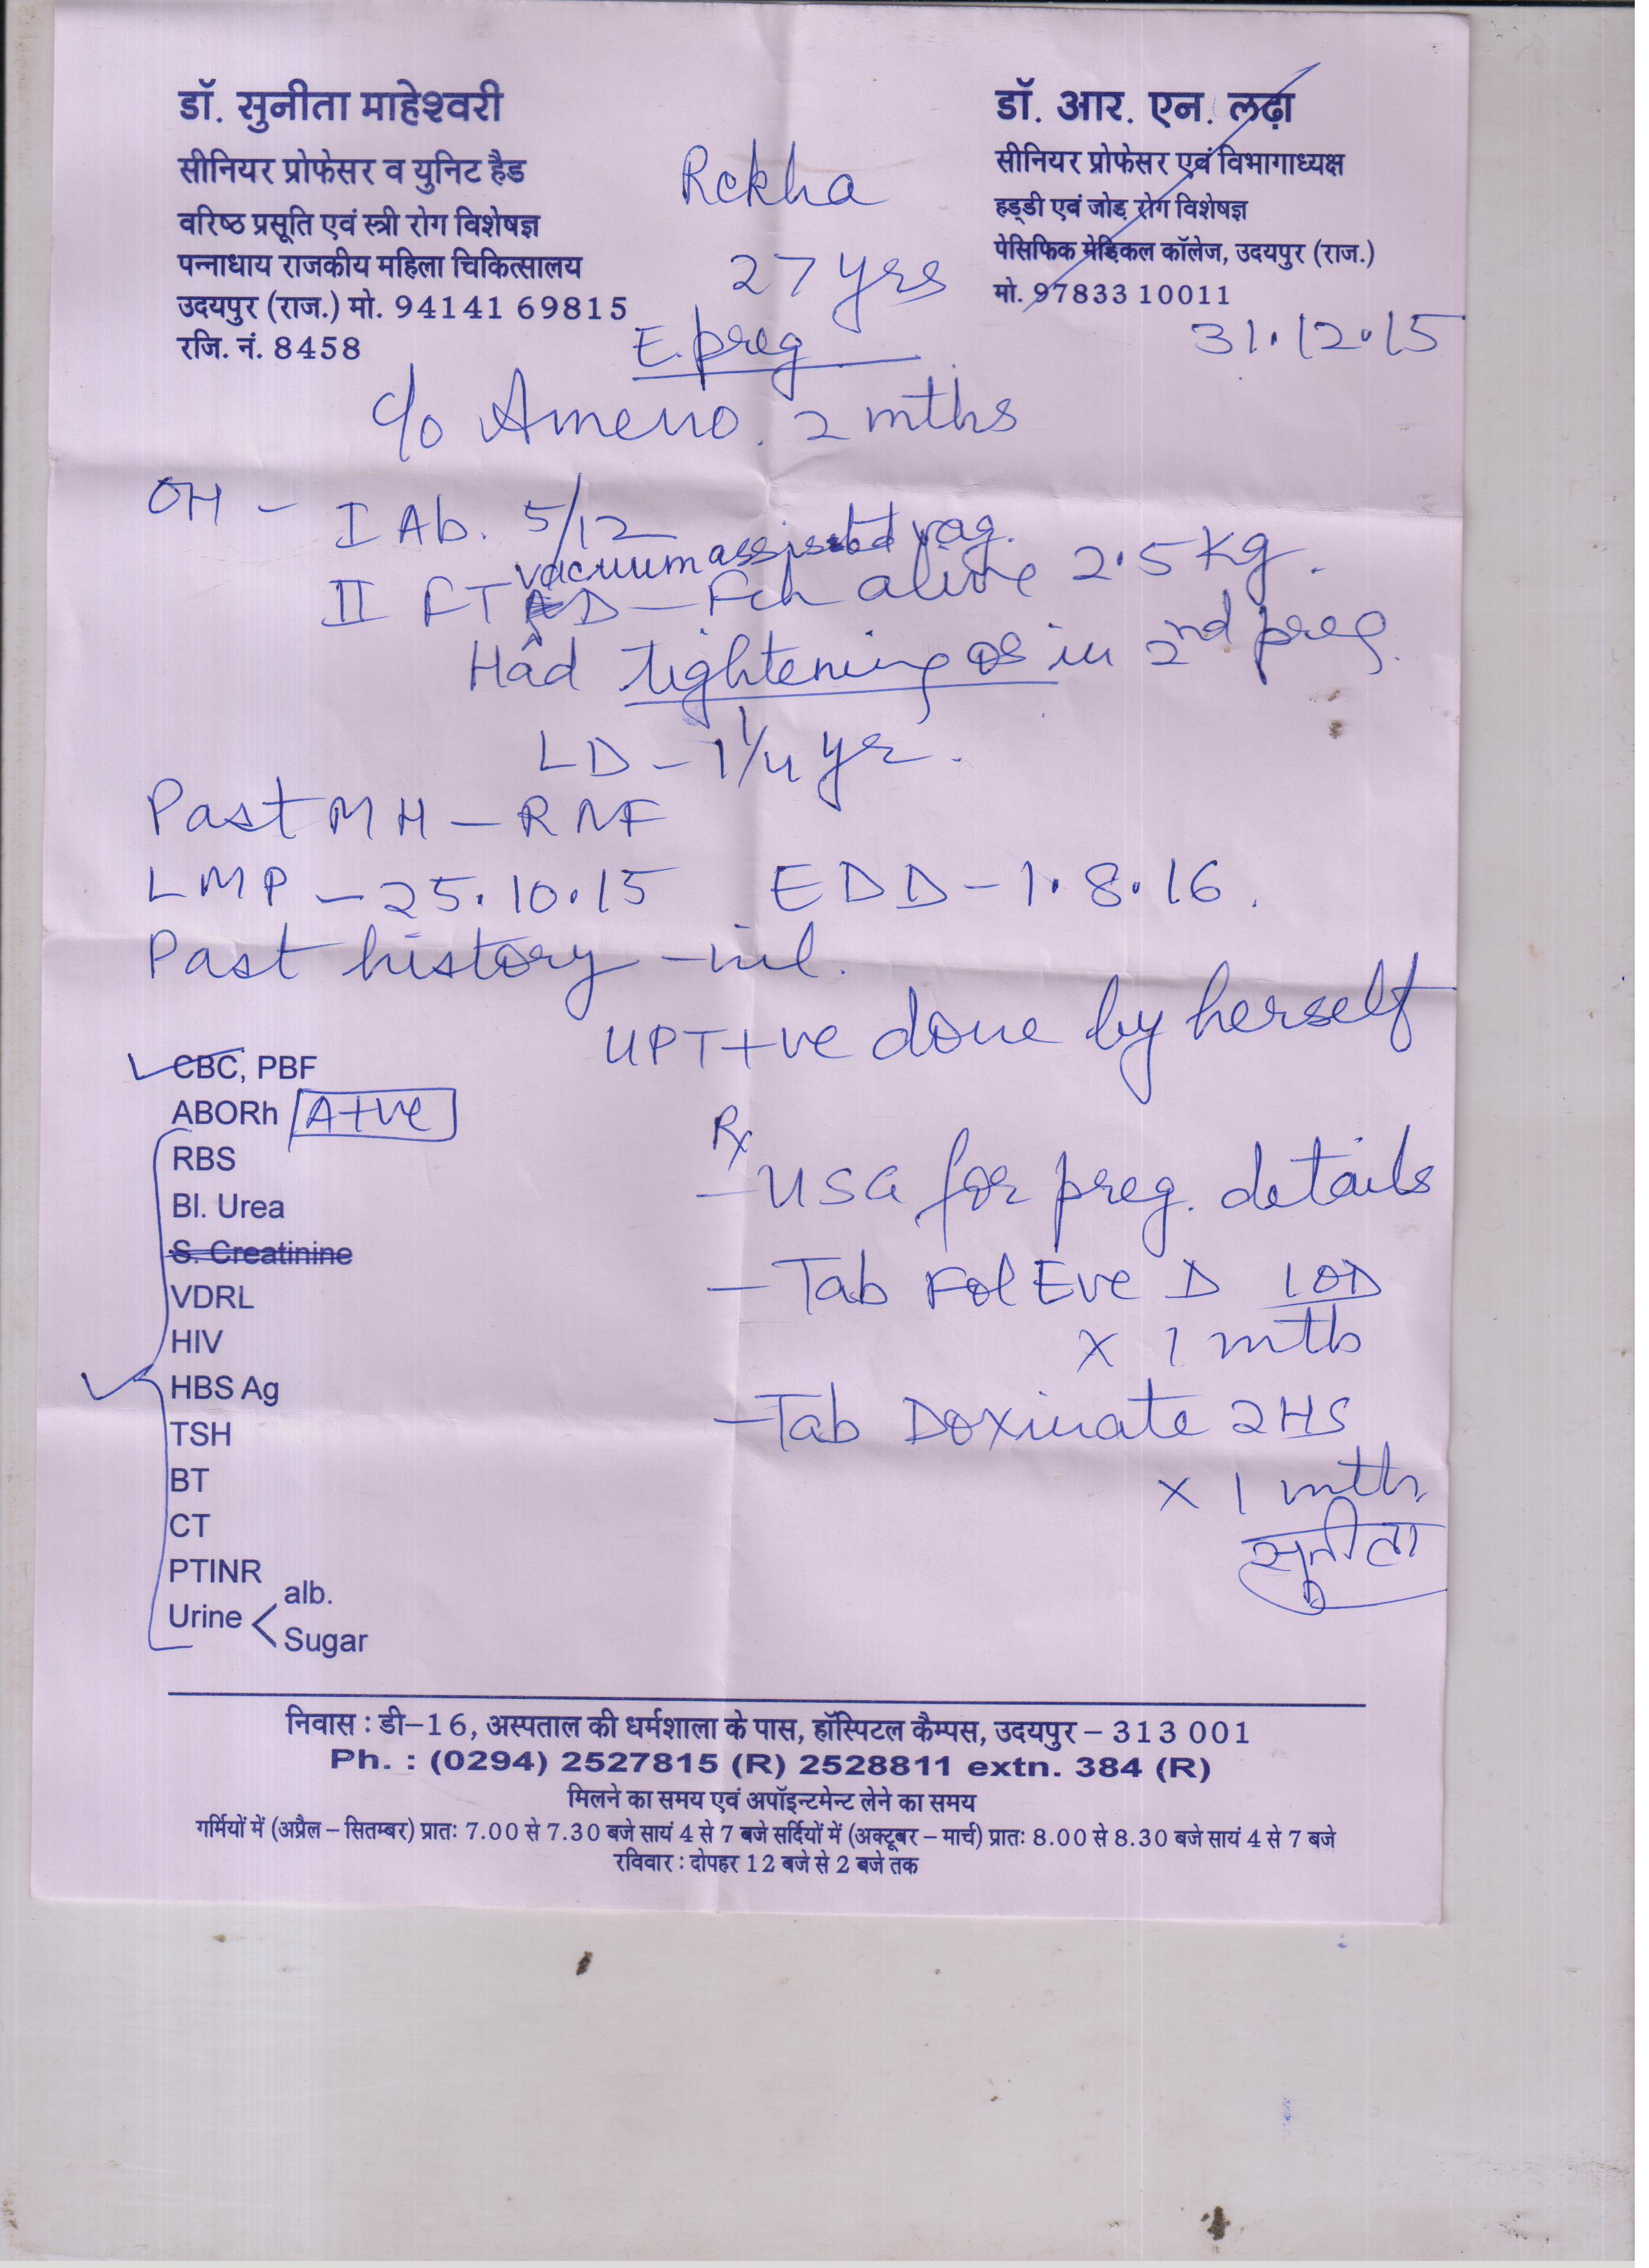 डॉ. सुनीता माहेश्वरी
सीनियर प्रोफेसर व युनिट हैड
वरिष्ठ प्रसूति एवं स्त्री रोग विशेषज्ञ
पन्नाधाय राजकीय महिला चिकित्सालय
उदयपुर (राज.) मो. 94141 69815
रजि. नं. 8458
डॉ. आर. एन. लढ़ा
सीनियर प्रोफेसर एवं विभागाध्यक्ष
हड्डी एवं जोड़ रोग विशेषज्ञ
पेसिफिक मेडिकल कॉलेज, उदयपुर (राज.)
मो. 97833 10011
Rekha
27 yrs
31.12.15
E. preg
c/o Ameno. 2 mths
OH - I Ab. 5/12
vacuum assisted vag.
II FT D - Fch alive 2.5 Kg.
Had tightening os in 2nd preg.
LD - 1 1/4 yr.
Past MH - RNF
LMP - 25.10.15 EDD - 1.8.16.
Past history - nil.
UPT +ve done by herself
CBC, PBF
ABORh A+ve
RBS
Bl. Urea
S. Creatinine
VDRL
HIV
HBS Ag
TSH
BT
CT
PTINR
Urine < alb.
Sugar
Rx
- USG for preg. details
- Tab Fol Eve D 1 OD
x 1 mth
- Tab Doxinate 2 HS
x 1 mth.
सुनीता
निवास : डी-16, अस्पताल की धर्मशाला के पास, हॉस्पिटल कैम्पस, उदयपुर - 313 001
Ph. : (0294) 2527815 (R) 2528811 extn. 384 (R)
मिलने का समय एवं अपॉइन्टमेन्ट लेने का समय
गर्मियों में (अप्रैल - सितम्बर) प्रातः 7.00 से 7.30 बजे सायं 4 से 7 बजे सर्दियों में (अक्टूबर - मार्च) प्रातः 8.00 से 8.30 बजे सायं 4 से 7 बजे
रविवार : दोपहर 12 बजे से 2 बजे तक